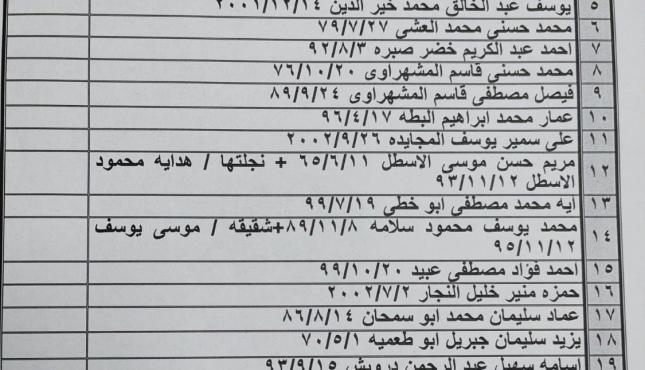 ٥ يوسف عبد الخالق محمد خير الدين ٢٠٠١/١٢/١٤
٦ محمد حسني محمد العشي ٧٩/٧/٢٧
٧ احمد عبد الكريم خضر صبره ٩٢/٨/٣
٨ محمد حسني قاسم المشهراوى ٧٦/١٠/٢٠
٩ فيصل مصطفى قاسم المشهراوى ٨٩/٩/٢٤
١٠ عمار محمد ابراهيم البطه ٩٦/٤/١٧
١١ علي سمير يوسف المجايده ٢٠٠٢/٩/٢٦
١٢ مريم حسن موسى الاسطل ٦٥/٦/١١ + نجلتها / هدايه محمود
الاسطل ٩٣/١١/١٢
١٣ ايه محمد مصطفى ابو خطي ٩٩/٧/١٩
١٤ محمد يوسف محمود سلامه ٨٩/١١/٨+شقيقه / موسى يوسف
٩٥/١١/١٢
١٥ احمد فؤاد مصطفى عبيد ٩٩/١٠/٢٠
١٦ حمزه منير خليل النجار ٢٠٠٢/٧/٢
١٧ عماد سليمان محمد ابو سمحان ٨٦/٨/١٤
١٨ يزيد سليمان جبريل ابو طعميه ٧٠/٥/١
١٩ اسامه سهيل عبد الرحمن درويش ٩٣/٩/١٥